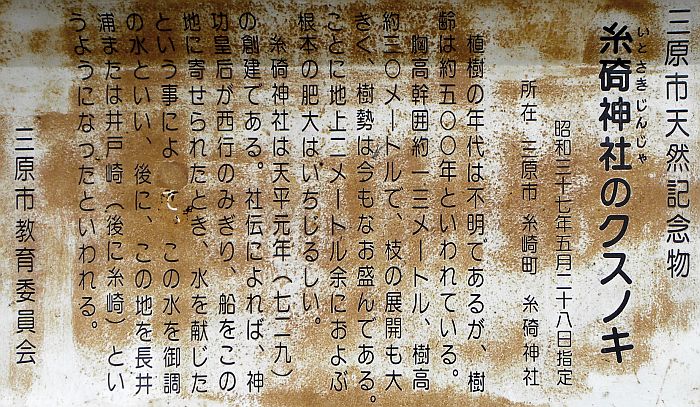 三原市天然記念物
いとさきじんじゃ
糸碕神社のクスノキ
昭和三十七年五月二十八日指定
所在 三原市 糸崎町 糸碕神社
植樹の年代は不明であるが、樹
齢は約五〇〇年といわれている。
胸高幹囲約一三メートル、樹高
約三〇メートルで、枝の展開も大
きく、樹勢は今もなお盛んである。
ことに地上二メートル余におよぶ
根本の肥大はいちじるしい。
糸碕神社は天平元年(七二九)
の創建である。社伝によれば、神
功皇后が西行のみぎり、船をこの
地に寄せられたとき、水を献じた
という事によって、この水を御調
の水といい、後に、この地を長井
浦または井戸崎(後に糸崎)とい
うようになったといわれる。
三原市教育委員会